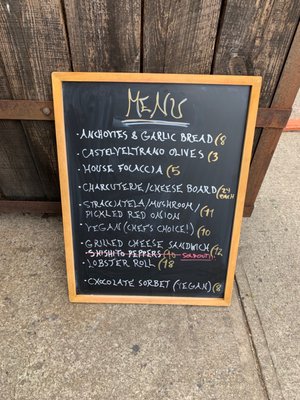 MENU
· ANCHOVIES & GARLIC BREAD (8
· CASTELVELTRANO OLIVES (3
· HOUSE FOCACCIA (5
· CHARCUTERIE/CHEESE BOARD (24 EACH
· STRACCIATELLA/MUSHROOM/
PICKLED RED ONION (11
· VEGAN (CHEF'S CHOICE!) (10
· GRILLED CHEESE SANDWICH (12
· SHISHITO PEPPERS SOLD OUT!
· LOBSTER ROLL (18
· CHOCOLATE SORBET (VEGAN) (8